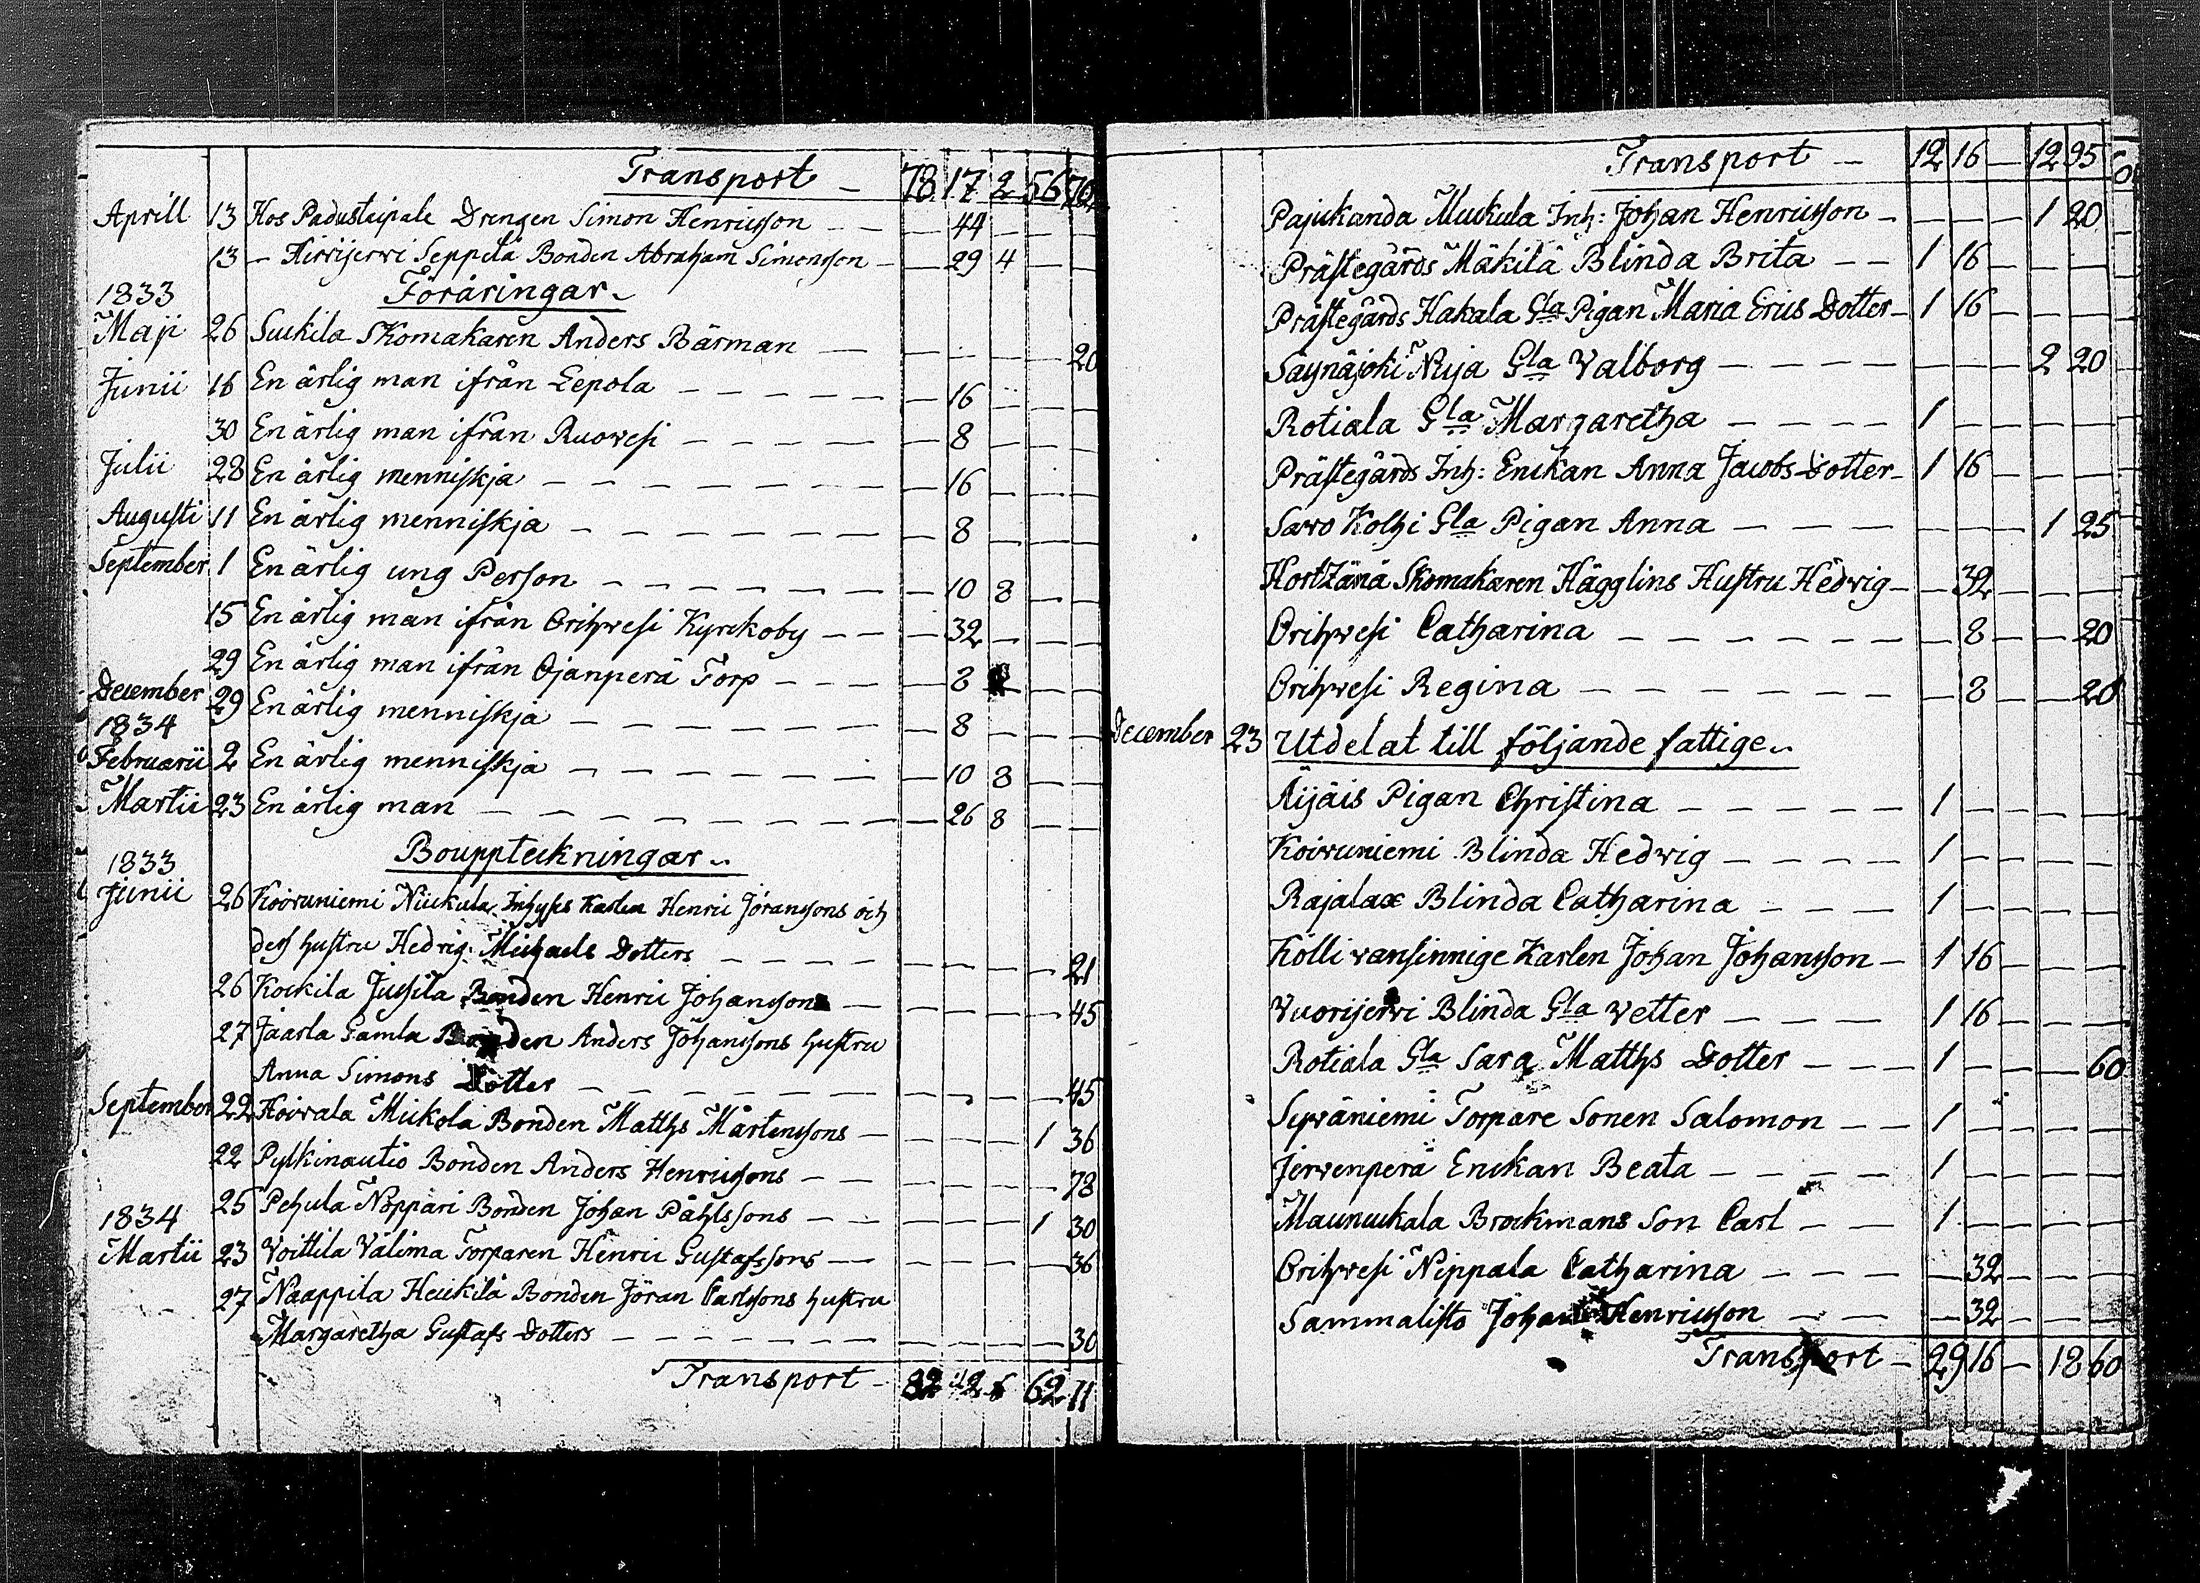 Transport – 78 17 2 56 70
Aprill 13 Hos Padustaipale Drengen Simon Henricsson – – – 44 – – –
13 – Hirvijervi Seppilä Bonden Abraham Simonsson – – 29 4 – –
1833 Föräringar.
Maji 26 Suckila Skomakaren Anders Bärman – – – – – 20
Junii 16 En ärlig man ifrån Lepola – – – – – – 16 – – –
30 En ärlig man ifrån Ruowesi – – – – – – 8 – – –
Julii 28 En ärlig menniskja – – – – – – – – 16 – – –
Augusti 11 En ärlig menniskja – – – – – – – 8 – – –
September 1 En ärlig ung Person – – – – – – – 10 8 – –
15 En ärlig man ifrån Orihwesi Kyrckoby – – – – 32 – – –
29 En ärlig man ifrån Ojanperä Torp – – – – 8 – – –
December 29 En ärlig menniskja – – – – – – – 8 – – –
1834
Februarii 2 En ärlig menniskja – – – – – – – 10 8 – –
Martii 23 En ärlig man – – – – – – – – – 26 8 – –
Bouppteckningar.
1833
Junii 26 Koivuniemi Nickula Inhyses Karlen Henric Jöranssons och
dess hustru Hedvig Michaels Dotters – – – – – – – – 21
26 Kockila Jussila Bonden Henric Johanssons – – – – – 45
27 Jaarla Gamla Bonden Anders Johanssons hustru
Anna Simons Dotter – – – – – – – – – – – 45
September 22 Hoivala Mickola Bonden Matths Mårtenssons – – – – 1 36
22 Pylkinautio Bonden Anders Henricssons – – – – – – 78
25 Pehula Noppari Bonden Johan Påhlssons – – – – – 1 30
1834
Martii 23 Voittila Välima Torparen Henric Gustafssons – – – – – 36
27 Naappila Heickilä Bonden Jöran Carlssons hustru
Margaretha Gustafs Dotters – – – – – – – – – – – 30
Transport – 82 42 6 62 11
Transport – 12 16 – 12 95
Pajukanda Muckula Inh: Johan Henricsson – – – – 1 20
Prästegårds Mäkilä Blinda Brita – – 1 16 – – –
Prästegårds Hakala Gla Pigan Maria Erics Dotter – 1 16 – – –
Säynäjoki Nyja Gla Valborg – – – – – – – 2 20
Rotiala Gla Margaretha – – – – 1 – – – –
Prästegårds Inh: Enckan Anna Jacobs Dotter – 1 16 – – –
Savo Kolhi Gla Pigan Anna – – – – – – – 1 25
Skomakaren Hägglins Hustru Hedvig – – 32 – – –
Orihwesi Catharina – – – – – – – – 8 – – 20
Orihwesi Regina – – – – – – – – 8 – – 20
December 23 Utdelat till följande fattige.
Äijäis Pigan Christina – – – – – 1 – – – –
Koivuniemi Blinda Hedwig – – – – 1 – – – –
Rajalax Blinda Catharina – – – 1 – – – –
Kolli vansinnige Karlen Johan Johansson – 1 16 – – –
Vuorijervi Blinda Gla Vetter – – – 1 16 – – –
Rotiala Gla Sara Matths Dotter – – – 1 – – – 60
Syväniemi Torpare Sonen Salomon – – 1 – – – –
Jervenperä Enckan Beata – – – – 1 – – – –
Maunuckala Brockmans Son Carl – – 1 – – – –
Orihwesi Neppala Catharina – – – – 32 – – –
Sammalisto Johan Henricsson – – – 32 – – –
Transport – 29 16 – 18 60